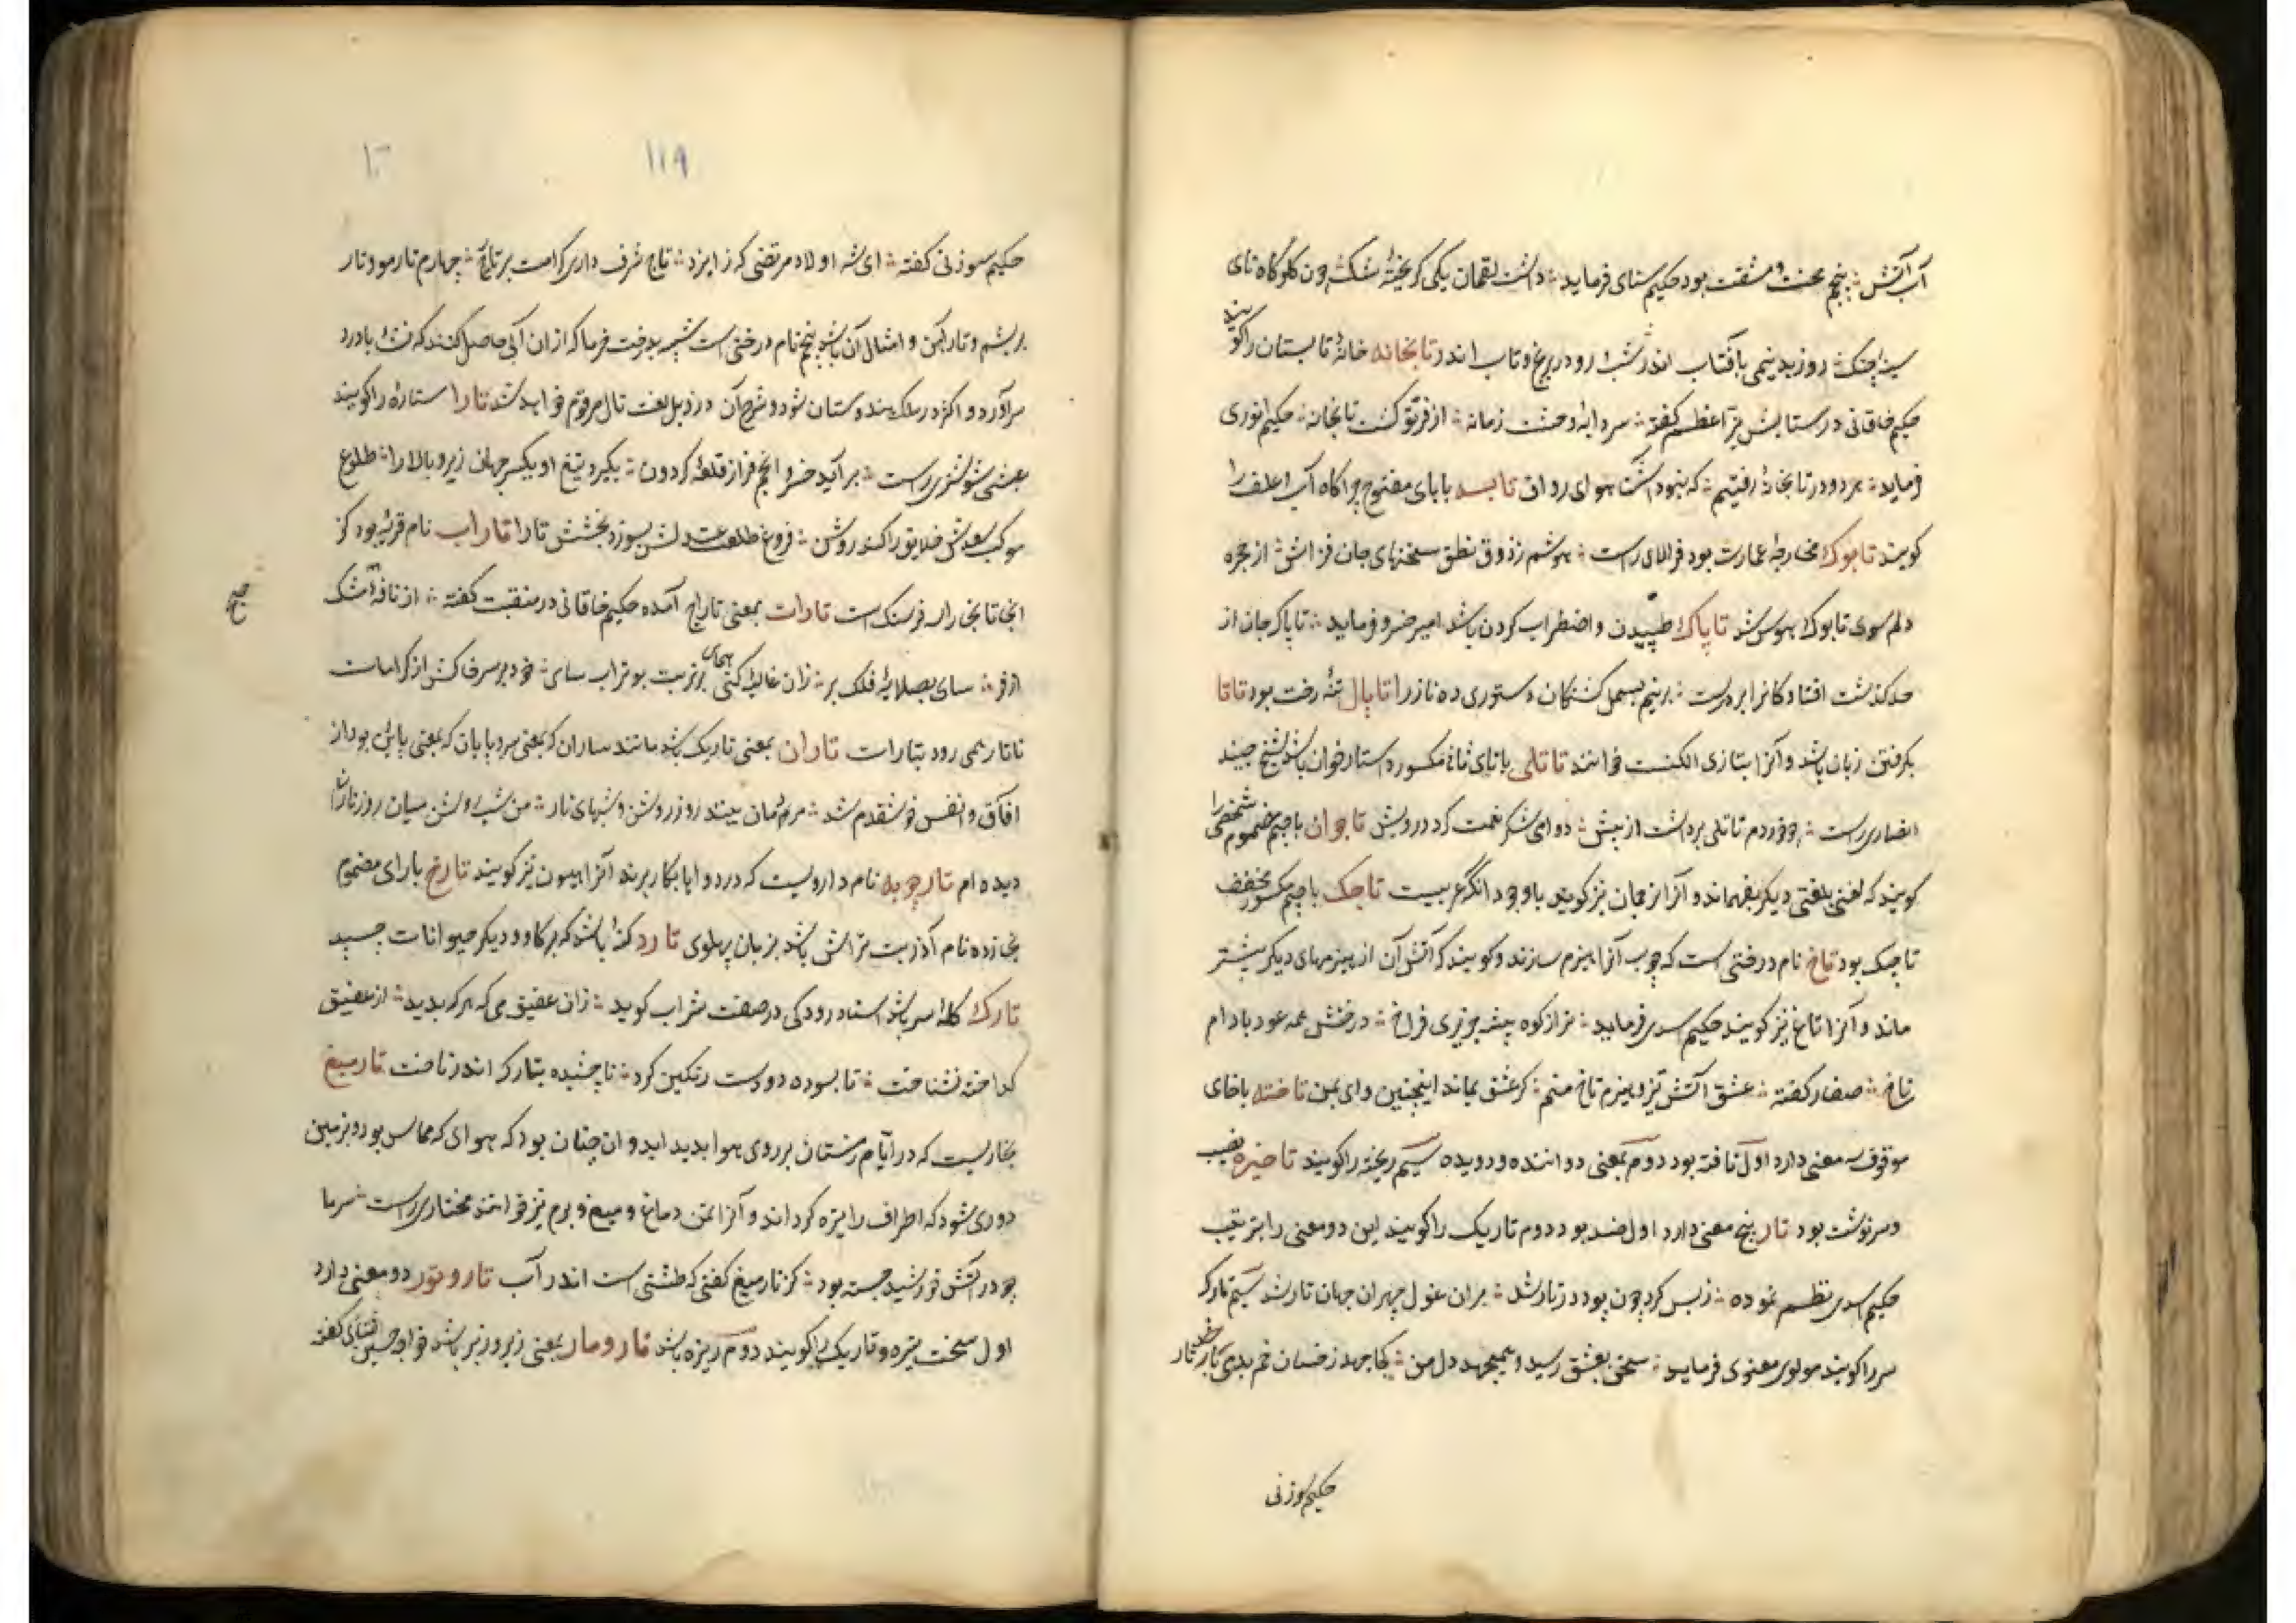 آب آتش ؞ پنجم محنت و مشقت بود حکیم سنای فرماید ؞ داشت لقمان یکی کریجهٔ تنک چون کلوکاه نای
سینهٔ چنک ؞ روز بد نیمی بآفتاب اندر شب او در رنج و تاب اندر تابخانه خانهٔ تابستان را کویند
حکیم خاقانی در ستایش نیر اعظم کفته ؞ سردابهٔ وحشت زمانه ؞ از فر تو کشت تابخانه ؞ حکیم انوری
فرماید ؞ هر دو در تابخانهٔ رفتیم ؞ که نبود آشنا هوای رواق تابسه بابای مفتوح چراکاه آب و علف را
کویند تابوک مخارجهٔ عمارت بود فرالای راست ؞ هوشم ز ذوق نطق سخنهای جان فزاش ؞ از حجره
دلم سوی تابوک هوس شد تاپاک طپیدن و اضطراب کردن باشد امیر خسرو فرماید ؞ تاپاک جان از
حد کذشت افتادکانرا بر درت ؞ برنیم بسمل کشتکان دستوری ده ناز را تاپال تنهٔ درخت بود تاتا
بکرفتن زبان باشد و آنرا بتازی الکنت خوانند تاتلی باتای ثانی مکسوره دستارخوان باشد شیخ جنید
انصاری راست ؞ چو خوردم تاتلی برداشت از پیش ؞ دوای شکر نعمت کرد درویش تاجوان باجیم مضموم شخصی را
کویند که لغتی بلغتی دیکر بفهماند و آنرا ترجمان نیز کویند باوجود آنکه عربیست تاجک باجیم مکسور مخفف
تاجیک بود تاخ نام درختی است که چوب آنرا هیزم سازند و کویند که آتش آن از هیزمهای دیکر بیشتر
ماند و آنرا تاغ نیز کویند حکیم اسدی فرماید ؞ براز کوه بیشه جزیری فراخ ؞ درختش همه عود و بادام
و تاخ ؞ صفار کفته ؞ عشق آتش تیز و هیزم تاخ منم ؞ کر عشق بماند اینچنین وای بمن تاخته باخای
موقوف سه معنی دارد اول تافته بود دوم بمعنی دوانیده و دویده سیم ریخته را کویند تاخیره نصیب
و سرنوشت بود تار پنج معنی دارد اول ضد پود دوم تاریک را کویند این دو معنی را بترتیب
حکیم اسدی نظم نموده ؞ ز بس کرد چون پود در تار شد ؞ بران غول چهران جهان تار شد سیم تارک
سر را کویند مولوی معنوی فرماید ؞ سخن بعشق رسید و همیجهد دل من ؞ کجا جهد ز چنان خم بدی
حکیم سوزنی
۱۱۹
حکیم سوزنی کفته ؞ ای شه اولاد مرتضی که ز ایزد ؞ تاج شرف داری کرامت بر تار ؞ چهارم تار مو و تار
ابریشم و تار آهن و امثال آن باشد پنجم نام درختی است شبیه بدرخت خرما که ازان آبی حاصل کنند که نشأ باده
برآورد و اکثر در ملک هندوستان شود و شرح آن در ذیل لغت تال مرقوم خواهد شد تارا ستاره را کویند
شوشتری راست ؞ برآید خسرو انجم فراز قلعهٔ کردون ؞ بکیرد تیغ او یکسر جهان زیر و بالا را ؞ طلوع
موکب سعدش خلایق را کند روشن ؞ فروغ طلعت بسوزد بخشش تارا تاراب نام قریهٔ بود کز
انجا تا بخارا سه فرسنک است تارات بمعنی تاراج آمده حکیم خاقانی در منقبت کفته ؞ از نافهٔ مشک
اذفر ؞ سای بصلایهٔ فلک بر ؞ زان غالیه کنی همای بر تربت بوتراب سای ؞ خود بر سرف کش از کرامات
تاتار همی رود بتارات تاران بمعنی تاریک باشد مانند ساران که بمعنی سر و پایان که بمعنی پائین بود از
آفاق و انفس خوشقدم شد ؞ مردمان بینند روز روشن و شبهای تار ؞ من شب روشن میان روز تاران
دیده ام تارچوبه نام داروئیست که در دواها بکار برند آنرا هلیون نیز کویند تارخ بارای مضموم
بخا زده نام آذر بت تراش باشد بزبان پهلوی تارد کنهٔ باشد که بر کاو و دیکر حیوانات چسپد
تارک کلهٔ سر باشد استاد رودکی در صفت شراب کوید ؞ زان عقیق می که هر که بدید ؞ از عقیق
کداخته نشناخت ؞ نابسوده دو دست رنکین کرد ؞ ناچشیده بتارک اندر تاخت تارمیغ
بخاریست که در ایام زمستان بر روی هوا پدید آید و آن چنان بود که هوای که مماس بود و بزمین
دودی شود که اطراف را تیره کرداند و آنرا تمن و ماغ و میغ و نرم نیز خوانند مختاری راست ؞ سرما
چو در آتش خورشید جسته بود ؞ کز تارمیغ کفتی که طشتی است اندر آب تاروتور دو معنی دارد
اول سخت تیره و تاریک را کویند دوم ریزه باشد تارومار بمعنی زیر و زبر باشد خواجه حسین ثنائی کفته